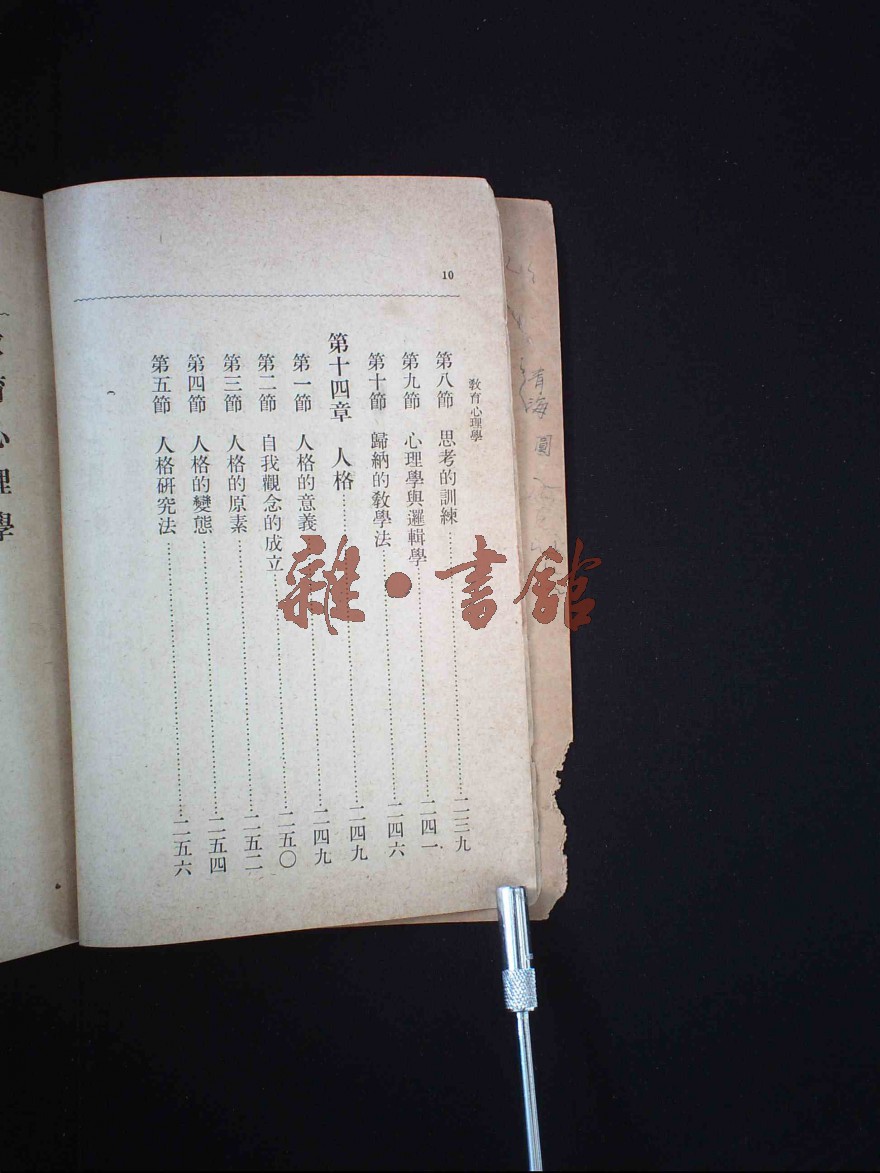 10
教育心理學
第八節 思考的訓練……二三九
第九節 心理學與邏輯學……二四一
第十節 歸納的教學法……二四六
第十四章 人格……二四九
第一節 人格的意義……二四九
第二節 自我觀念的成立……二五〇
第三節 人格的原素……二五二
第四節 人格的變態……二五四
第五節 人格研究法……二五六
育心理學
青海
圓
雜·書館